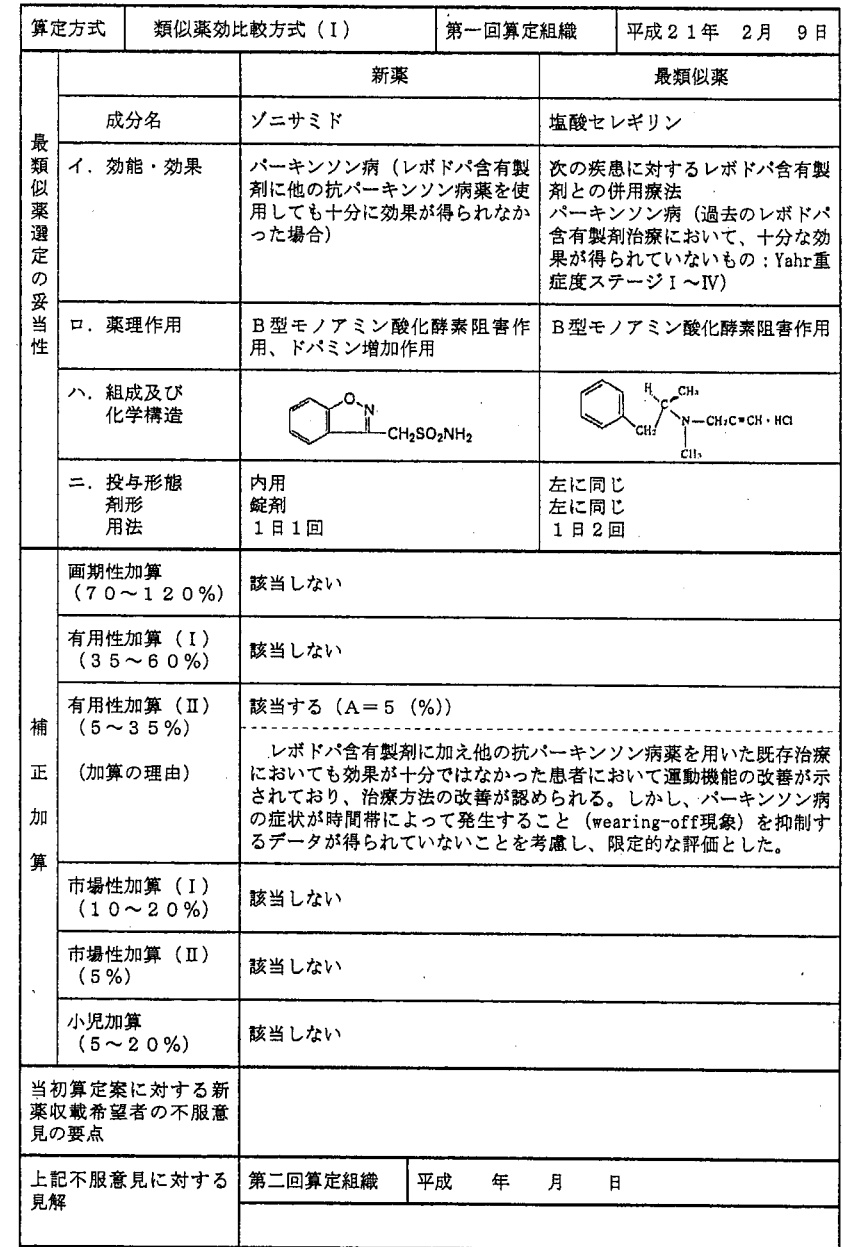 算定方式 類似薬効比較方式（Ⅰ） 第一回算定組織 平成２１年 ２月 ９日
最類似薬選定の妥当性
新薬 最類似薬
成分名 ゾニサミド 塩酸セレギリン
イ．効能・効果
パーキンソン病（レボドパ含有製
剤に他の抗パーキンソン病薬を使
用しても十分に効果が得られなか
った場合）
次の疾患に対するレボドパ含有製
剤との併用療法
パーキンソン病（過去のレボドパ
含有製剤治療において、十分な効
果が得られていないもの：Yahr重
症度ステージⅠ～Ⅳ）
ロ．薬理作用
Ｂ型モノアミン酸化酵素阻害作
用、ドパミン増加作用
Ｂ型モノアミン酸化酵素阻害作用
ハ．組成及び
化学構造
O N
CH2SO2NH2
H CH3
C
CH2 N－CH2C≡CH・HCl
CH3
ニ．投与形態
剤形
用法
内用
錠剤
１日１回
左に同じ
左に同じ
１日２回
補正加算
画期性加算
（７０～１２０％）
該当しない
有用性加算（Ⅰ）
（３５～６０％）
該当しない
有用性加算（Ⅱ）
（５～３５％）
（加算の理由）
該当する（Ａ＝５（％））
レボドパ含有製剤に加え他の抗パーキンソン病薬を用いた既存治療
においても効果が十分ではなかった患者において運動機能の改善が示
されており、治療方法の改善が認められる。しかし、パーキンソン病
の症状が時間帯によって発生すること（wearing-off現象）を抑制す
るデータが得られていないことを考慮し、限定的な評価とした。
市場性加算（Ⅰ）
（１０～２０％）
該当しない
市場性加算（Ⅱ）
（５％）
該当しない
小児加算
（５～２０％）
該当しない
当初算定案に対する新
薬収載希望者の不服意
見の要点
上記不服意見に対する
見解
第二回算定組織 平成 年 月 日